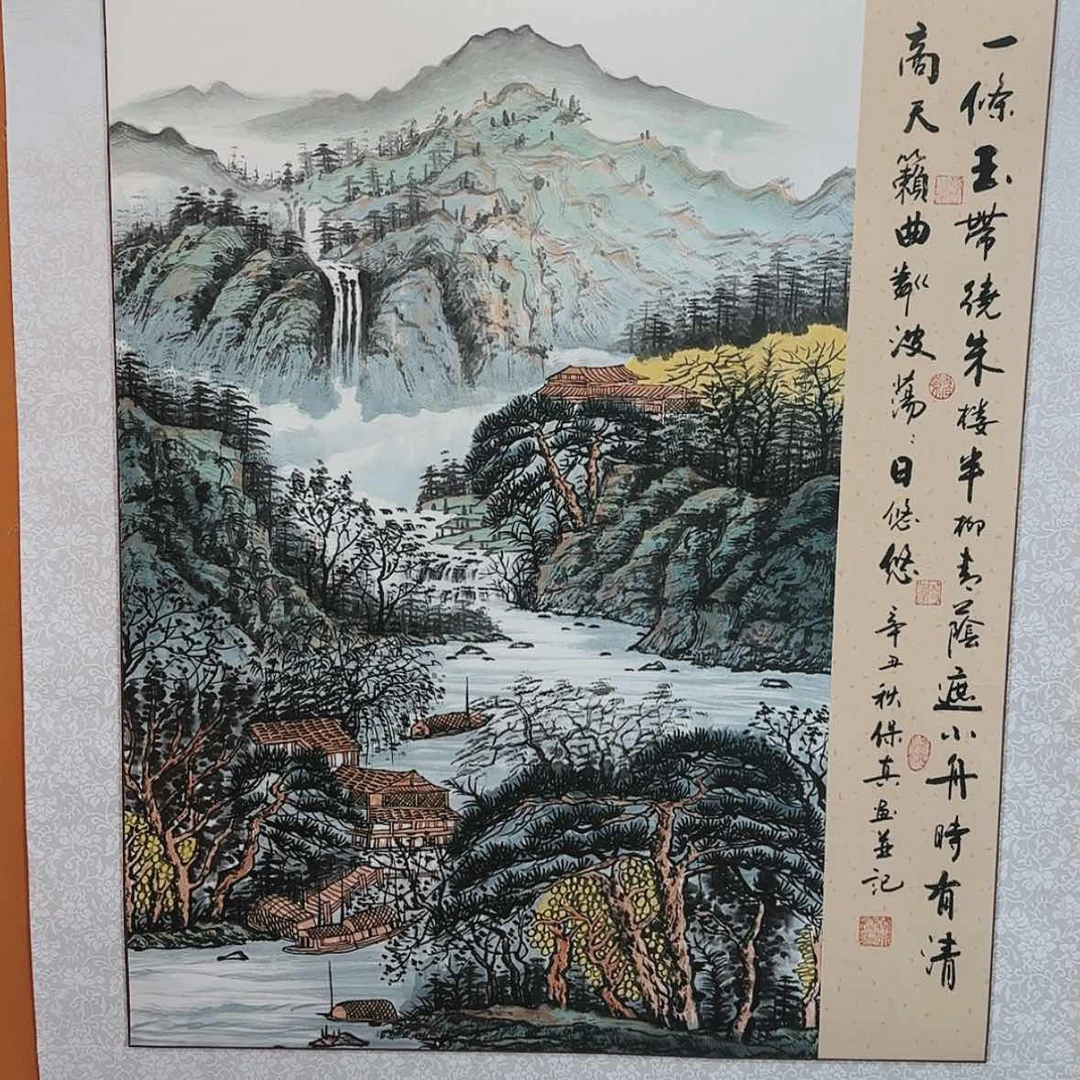 一條玉帶繞朱楼半柳青蔭遮小舟時有清
商天籟曲粼々波蕩々日悠悠辛丑秋保真画並記